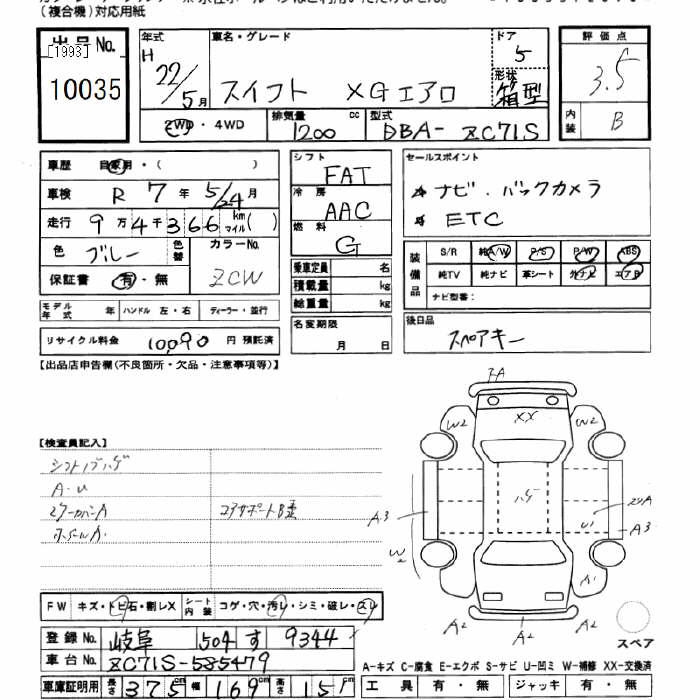 (複合機)対応用紙
出品No.
[1993]
10035
年式 車名・グレード ドア
H 22/5月 スイフト XGエアロ 5
形状 箱型
2WD・4WD 排気量 1200 cc 型式 DBA-ZC71S
評価点
3.5
内装 B
車歴 自家用・( )
車検 R 7年 5/24月
走行 9万4千366 km マイル( )
色 ブルー 色替 カラーNo. ZCW
保証書 有・無
モデル年式 年 ハンドル 左・右 ディーラー・並行
リサイクル料金 10,090 円 預託済
シフト FAT
冷房 AAC
燃料 G
乗車定員 名
積載量 kg
総重量 kg
名変期限
月 日
セールスポイント
ナビ.バックカメラ
ETC
装備品
S/R 純A/W P/S P/W ABS
純TV 純ナビ 革シート 外ナビ エアB
ナビ型番:
後日品
スペアキー
【出品店申告欄(不良箇所・欠品・注意事項等)】
【検査員記入】
シフトノブハゲ
A・U
ホイールA
コアサポートB歪
FW キズ・トビ石・割レX シート内装 コゲ・穴・汚レ・シミ・破レ・スレ
登録No. 岐阜 504 す 9344
車台No. ZC71S-585479
車庫証明用 長さ 375cm 幅 169cm 高さ 151
A W2 XX W2
ハゲ
A3 A3 U1
W2 A1
A2 A2 A2
スペア
A-キズ C-腐食 E-エクボ S-サビ U-凹ミ W-補修 XX-交換済
工具 有・無 ジャッキ 有・無